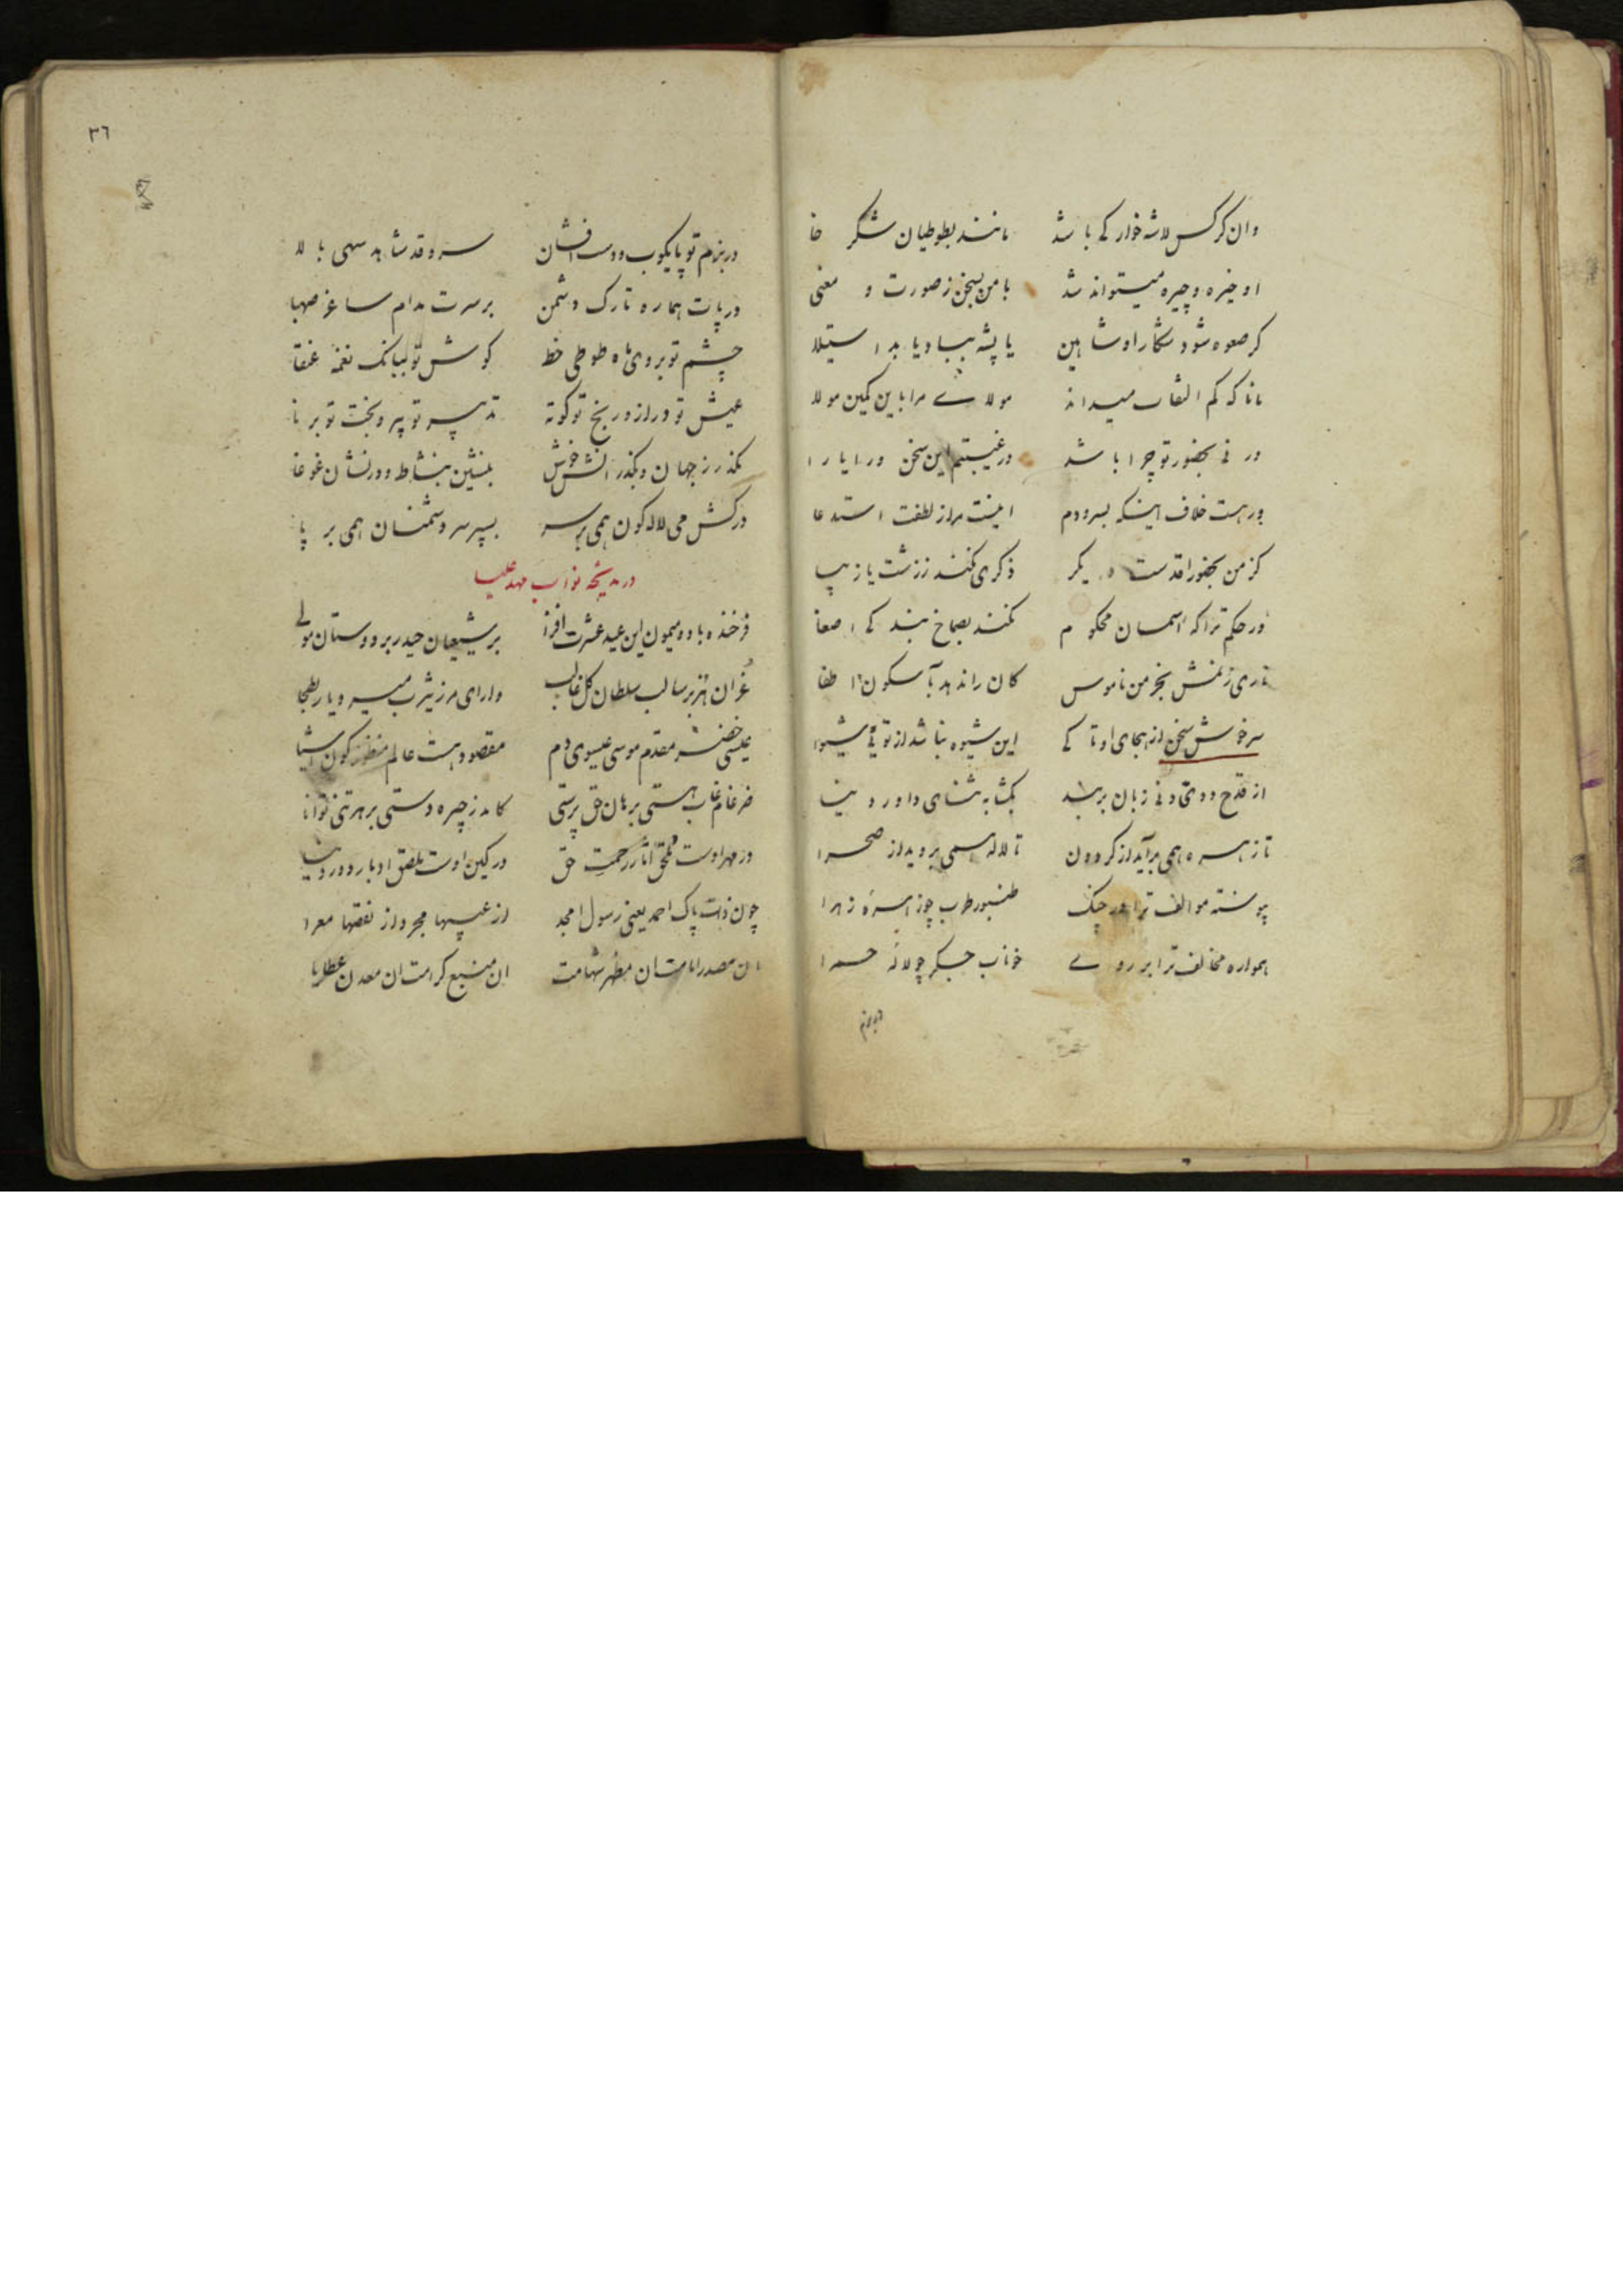 وان کرکس لاشه خوار کی باشد مانند بطوطیان شکر خا
او خیره و چیره میتواند شد با من بسخن ز صورت و معنی
کر صعوه شود شکار او شاهین یا پشه بباد یابد استیلا
مانا که کم التفات میداند مولای مرا باین کمین مولا
ور نی بحضور تو چرا باشد در غیبتم این سخن ورا یارا
ور هست خلاف اینکه بسرودم اینست مراز لطفت استدعا
کز من بحضور اقدست دیگر ذکری نکنند ز زشت یا زیبا
ور حکم ترا که آسمان محکوم نکنند بصماخ بند کی اصغا
ناری زنمش بخرمن ناموس کان راندهد آبسکون اطفا
سرخوش سخن از هجای او تا کی این شیوه نباشد از تو نی شیوا
از قدح دوتی و نی زبان بربند بکشا به ثنای داور دنیا
تا زهره همی برآید از کردون تا لاله همی بروید از صحرا
پیوسته موالف ترا در چنک طنبور طرب چو زهره زهرا
همواره مخالف ترا بر روی خوناب جکر چو لاله حمرا
دربزم
٣٦
در بزم تو پایکوب و دست افشان سرو قد شاهد سهی بالا
در پات هماره تارک دشمن بر سرت مدام ساغر صهبا
چشم تو بروی ماه طوطی خط کوش تو ببانک نغمه عنقا
عیش تو دراز و رنج تو کوته تدبیر تو پیر و بخت تو برنا
بکذر ز جهان و بکذرانش خوش بنشین بنشاط و ورنشان غوغا
درکش می لاله کون همی بر سر بسپر سر دشمنان همی بر پا
در مدیحه نواب مهد علیا
فرخنده باد و میمون این عید عشرت افزا بر شیعیان حیدر بر دوستان مولی
غران هژبر سالب سلطان کل غالب دارای مرز یثرب میر دیار بطحا
عیسی خضر مقدم موسی عیسوی دم مقصود هست عالم منظور کون اشیا
ضرغام غاب هستی برهان حق پرستی کامد ز چیره دستی بر هر تنی توانا
در مهر اوست ملحق آثار رحمت حق در کین اوست ملصق ادبار دور دنیا
چون ذات پاک احمد یعنی رسول امجد از عیبها مجرد از نقصها معرا
ان مصدر امامت ان مظهر شهامت ان منبع کرامت ان معدن عطایا